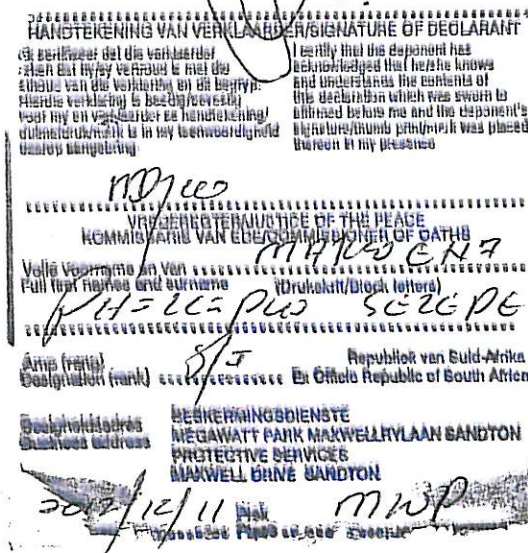 HANDTEKENING VAN VERKLAARDER/SIGNATURE OF DECLARANT
Ek sertifiseer dat die verklaarder erken dat hy/sy vertroud is met die inhoud van die verklaring en dit begryp. Hierdie verklaring is beëdig/bevestig voor my en verklaarder se handtekening/duimafdruk/merk is in my teenwoordigheid daarop aangebring.
I certify that the deponent has
acknowledged that he/she knows
and understands the contents of
this declaration which was sworn to
affirmed before me and the deponent's
signature/thumb print/mark was placed
thereon in my presence
VREDEREGTER/JUSTICE OF THE PEACE
KOMMISSARIS VAN EDE/COMMISSIONER OF OATHS
Volle voorname en van
Full first names and surname (Drukskrif/Block letters)
Amp (rang) Republiek van Suid-Afrika
Designation (rank) S/I Ex Officio Republic of South Africa
Besigheidsadres BESKERMINGSDIENSTE
Business address MEGAWATT PARK MAXWELLRYLAAN SANDTON
PROTECTIVE SERVICES
MAXWELL DRIVE SANDTON
2012/12/11 Plek MWP